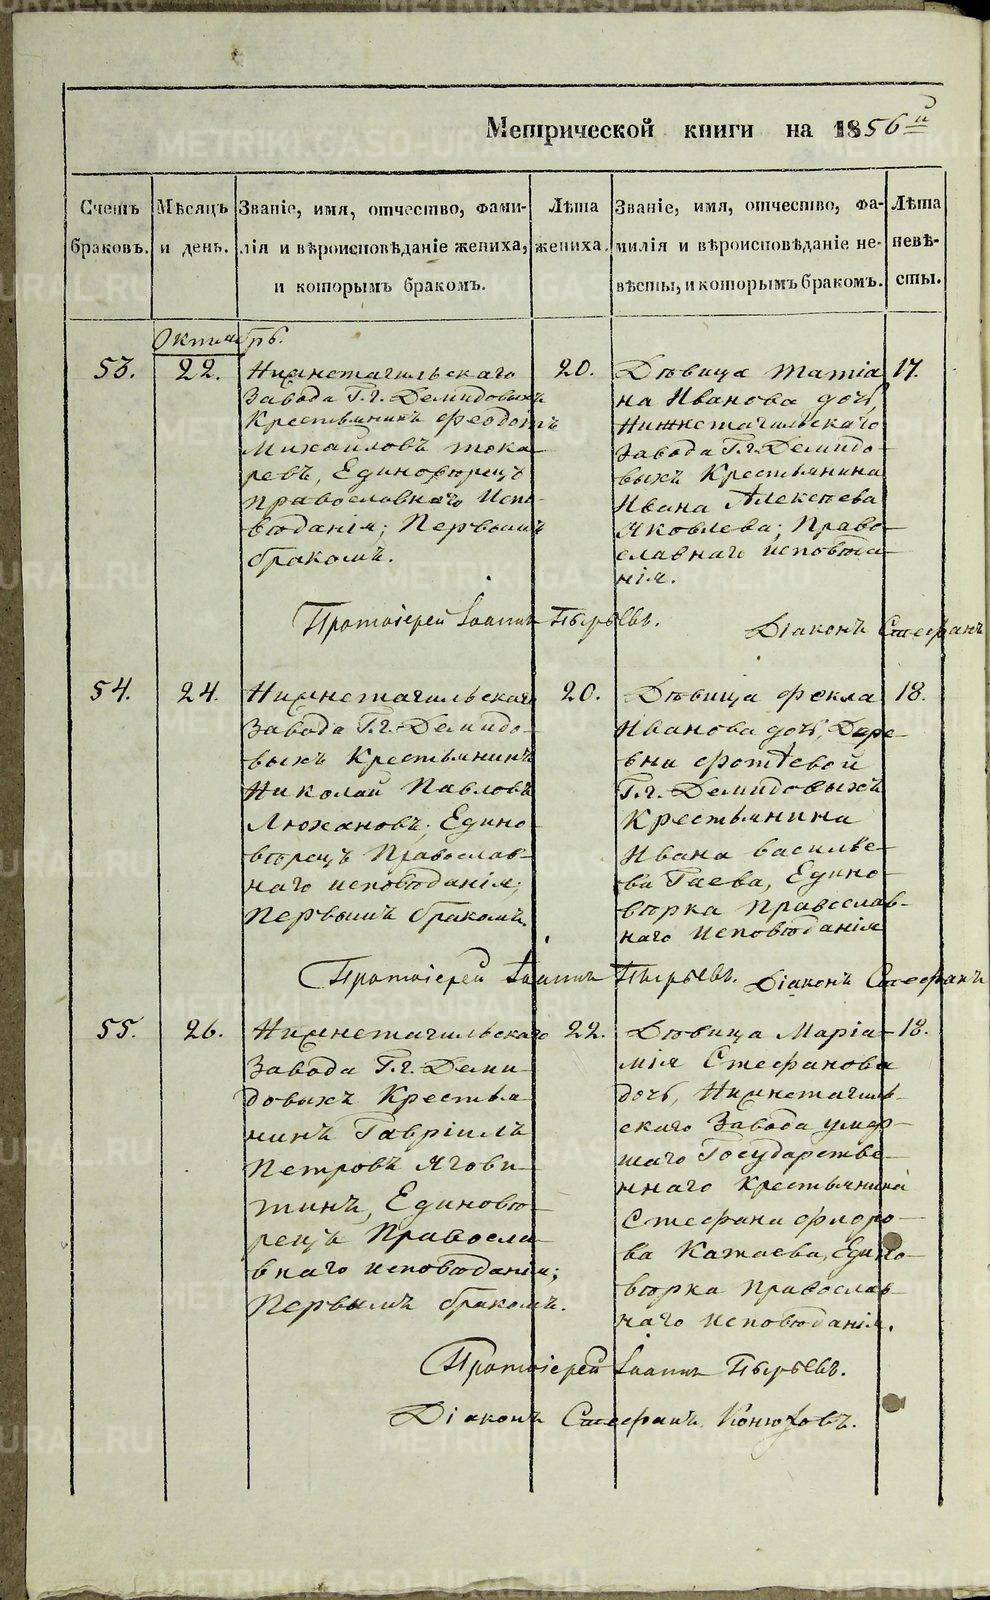 Метрической книги на 1856й
Счетъ браковъ.
Мѣсяцъ и день.
Званіе, имя, отчество, фами-
лія и вѣроисповѣданіе жениха,
и которымъ бракомъ.
Лѣта
жениха.
Званіе, имя, отчество, фа-
милія и вѣроисповѣданіе не-
вѣсты, и которымъ бракомъ.
Лѣта
невѣ-
сты.
Октябрь.
53.
22.
Нижнетагильскаго
Завода Г.г. Демидовыхъ
Крестьянинъ Феодотъ
Михайловъ Тока-
ревъ, Единовѣрецъ
Православнаго Испо-
вѣданія; Первымъ
бракомъ.
20.
Дѣвица Татіа-
на Иванова дочь,
Нижнетагильскаго
Завода Г.г. Демидо-
выхъ Крестьянина
Ивана Алексѣева
Яковлева; Право-
славнаго исповѣда-
нія.
17.
Протоіерей Іоаннъ Пырьевъ.
Діаконъ Стефанъ
54.
24.
Нижнетагильскаго
Завода Г.г. Демидо-
выхъ Крестьянинъ
Николай Павловъ
Люхановъ; Едино-
вѣрецъ Православ-
наго исповѣданія;
Первымъ бракомъ.
20.
Дѣвица Фекла
Иванова дочь, Дере-
вни Фотѣевой
Г.г. Демидовыхъ
Крестьянина
Ивана Василье-
ва Гаева, Едино-
вѣрка Православ-
наго Исповѣданія
18.
Протоіерей Іоаннъ Пырьевъ.
Діаконъ Стефанъ
55.
26.
Нижнетагильскаго
Завода Г.г. Деми-
довыхъ Крестья-
нинъ Гавріилъ
Петровъ Ягови-
тинъ, Единовѣ-
рецъ Правосла-
внаго исповѣданія;
Первымъ бракомъ.
22.
Дѣвица Маріа-
мія Стефанова
дочь, Нижнетагиль-
скаго Завода умер-
шаго Государстве-
ннаго Крестьянина
Стефана Флоро-
ва Катаева, Едино-
вѣрка Православ-
наго Исповѣданія.
18.
Протоіерей Іоаннъ Пырьевъ.
Діаконъ Стефанъ Конюховъ.
METRIKI.GASO-URAL.RU